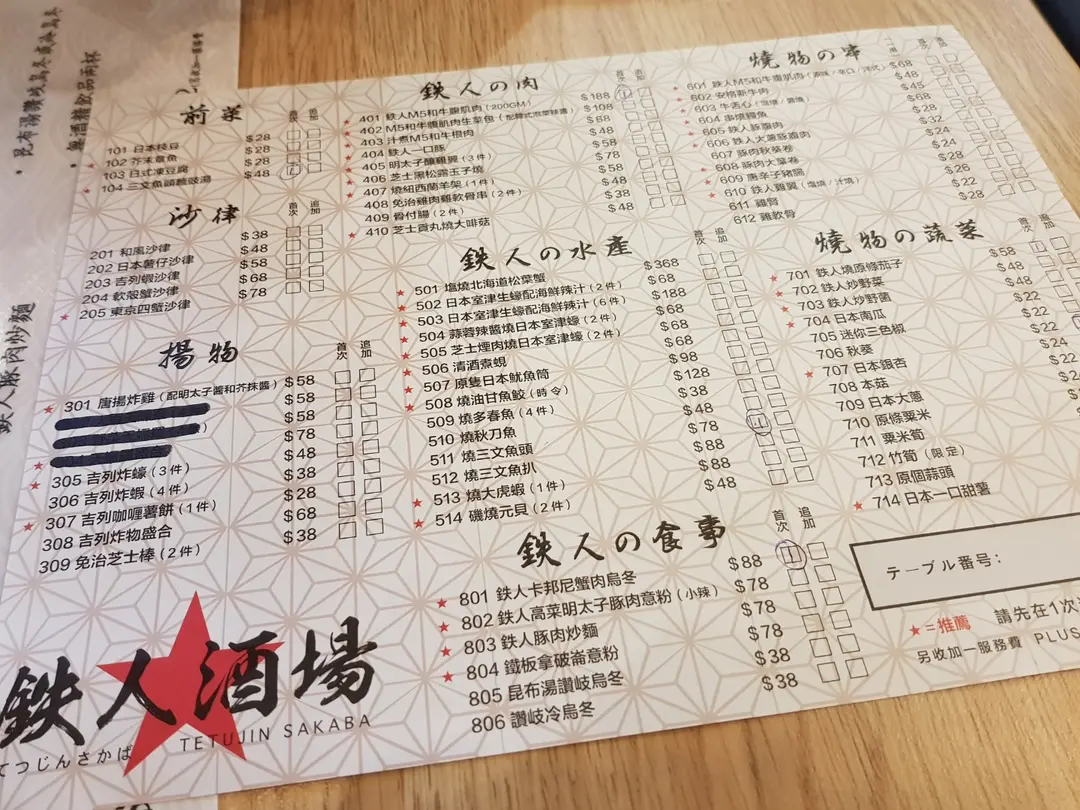 昆布湯讚岐烏冬或冷烏冬
無酒精飲品兩杯
鉄人豚肉炒麵
前菜
首次 追加
101 日本枝豆 $28
102 芥末章魚 $28
103 日式凍豆腐 $28
104 三文魚頭麵豉湯 $48
沙律
首次 追加
201 和風沙律 $38
202 日本薯仔沙律 $48
203 吉列蝦沙律 $58
204 軟殼蟹沙律 $68
205 東京四蟹沙律 $78
揚物
首次 追加
301 唐揚炸雞(配明太子醬和芥抹醬) $58
$58
$58
$78
305 吉列炸蠔(3件) $48
306 吉列炸蝦(4件) $38
307 吉列咖喱薯餅(1件) $28
308 吉列炸物盛合 $68
309 免治芝士棒(2件) $38
鉄人の肉
首次 追加
401 鉄人M5和牛腹肌肉(200GM) $188
402 M5和牛腹肌肉生菜包 $108
403 汁煮M5和牛根肉 $88
404 鉄人一口豚 $48
405 明太子釀雞翼(3件) $58
406 芝士黑松露玉子燒 $78
407 燒紐西蘭羊架(1件) $58
408 免治雞肉雞軟骨串(2件) $48
409 骨付腸(2件) $38
410 芝士貢丸燒大啡菇 $48
鉄人の水產
首次 追加
501 塩燒北海道松葉蟹 $368
502 日本室津生蠔配海鮮辣汁(2件) $68
503 日本室津生蠔配海鮮辣汁(6件) $188
504 蒜蓉辣醬燒日本室津蠔(2件) $68
505 芝士煙肉燒日本室津蠔(2件) $68
506 清酒煮蜆 $68
507 原隻日本魷魚筒 $98
508 燒油甘魚鮫(時令) $128
509 燒多春魚(4件) $38
510 燒秋刀魚 $48
511 燒三文魚頭 $78
512 燒三文魚扒 $88
513 燒大虎蝦(1件) $88
514 磯燒元貝(2件) $48
鉄人の食事
首次 追加
801 鉄人卡邦尼蟹肉烏冬 $88
802 鉄人高菜明太子豚肉意粉(小辣) $78
803 鉄人豚肉炒麵 $78
804 鐵板拿破崙意粉 $78
805 昆布湯讚岐烏冬 $38
806 讚岐冷烏冬 $38
燒物の串
首次 追加
601 鉄人M5和牛腹肌肉 $68
602 安格斯牛肉 $45
603 牛舌心 $48
604 串燒鰻魚 $68
605 鉄人豚腹肉 $28
606 鉄人大蔥豚腩肉 $32
607 豚肉秋葵卷 $28
608 豚肉大葉卷 $28
609 唐辛子豬腸 $24
610 鉄人雞翼(塩燒/汁燒) $26
611 雞腎 $22
612 雞軟骨 $28
燒物の蔬菜
首次 追加
701 鉄人燒原條茄子 $58
702 鉄人炒野菜 $48
703 鉄人炒野菌 $48
704 日本南瓜 $22
705 迷你三色椒 $22
706 秋葵 $22
707 日本銀杏 $24
708 本菇
709 日本大蔥
710 原條粟米
711 粟米筍
712 竹筍(限定)
713 原個蒜頭
714 日本一口甜薯
テーブル番号:
★=推薦 請先在1次
另收加一服務費 PLUS
鉄人酒場
TETUJIN SAKABA
てつじんさかば